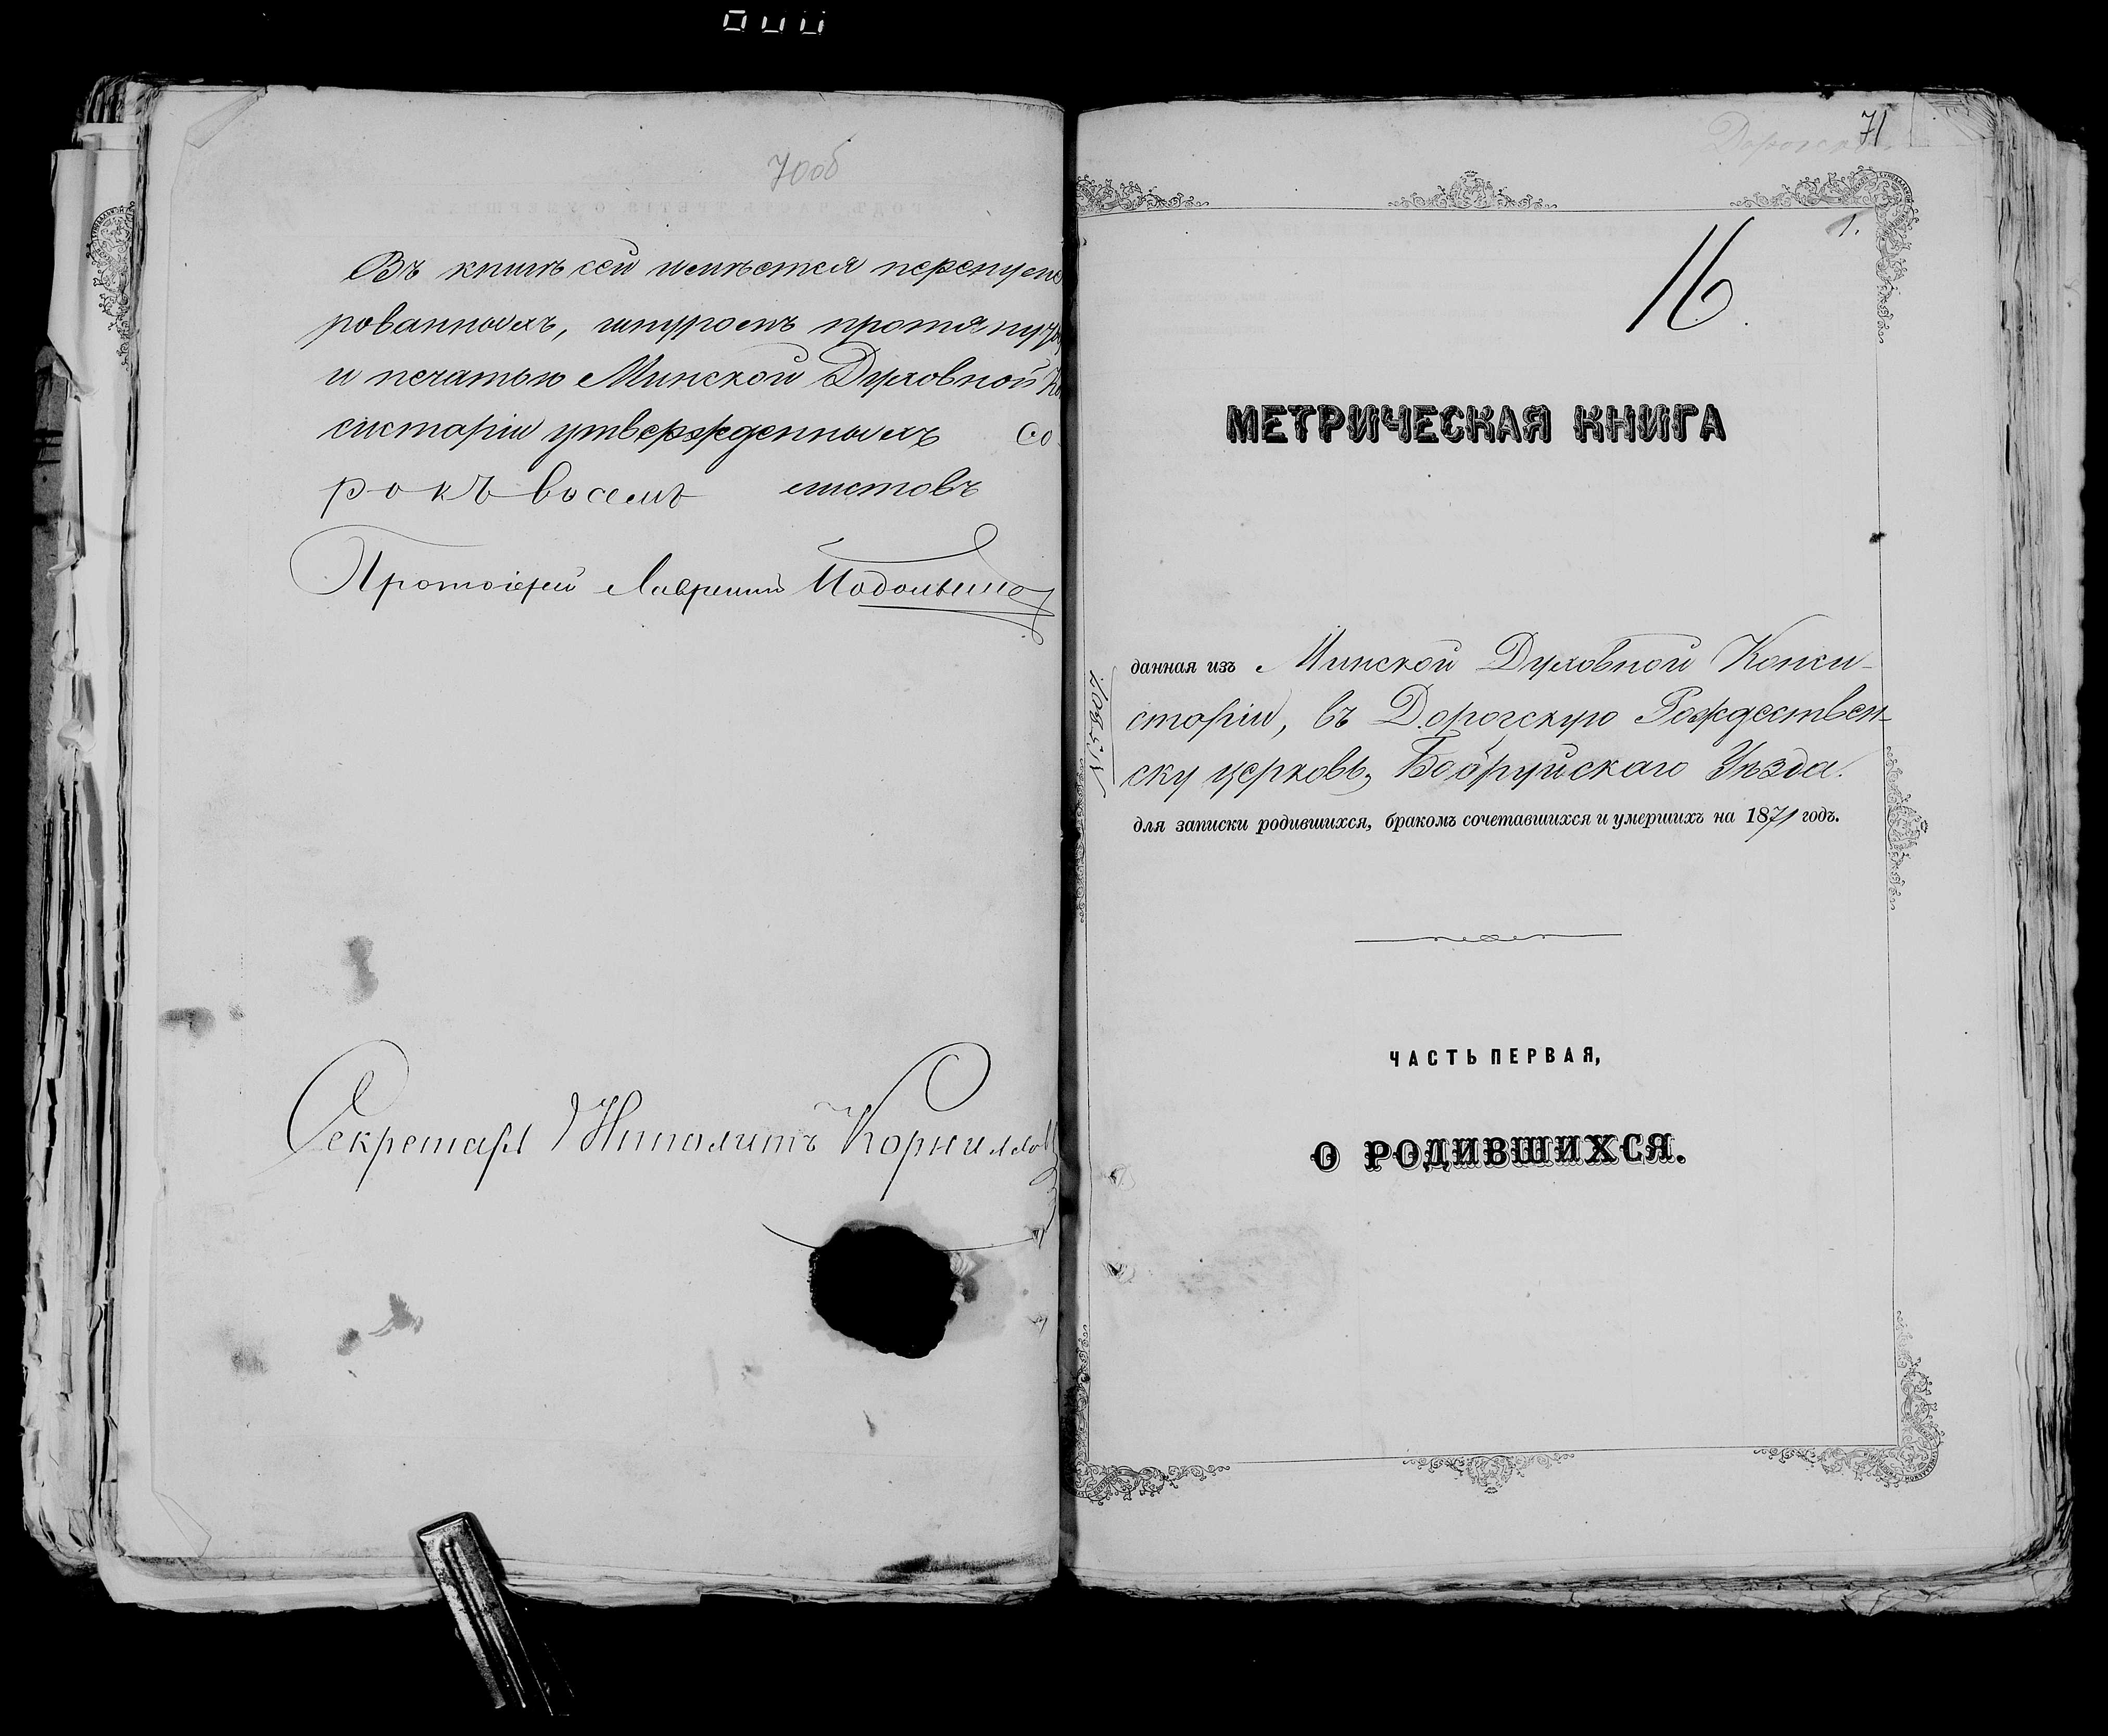 70об
Въ книгѣ сей имѣется перенуме
рованныхъ, шнуромъ протяну
и печатью Минской Духовной Ко
систоріи утвержденныхъ Со
рокъ восемь листовъ
Протоіерей Лаврентій
Секретарь Ипполитъ Корнилов
71
1.
16
МЕТРИЧЕСКАЯ КНИГА
данная изъ Минской Духовной Конси-
сторіи, въ Дорогскую Рождествен-
ску церковь, Бобруйскаго Уѣзда.
для записки родившихся, бракомъ сочетавшихся и умершихъ на 1871 годъ.
ЧАСТЬ ПЕРВАЯ,
О РОДИВШИХСЯ.